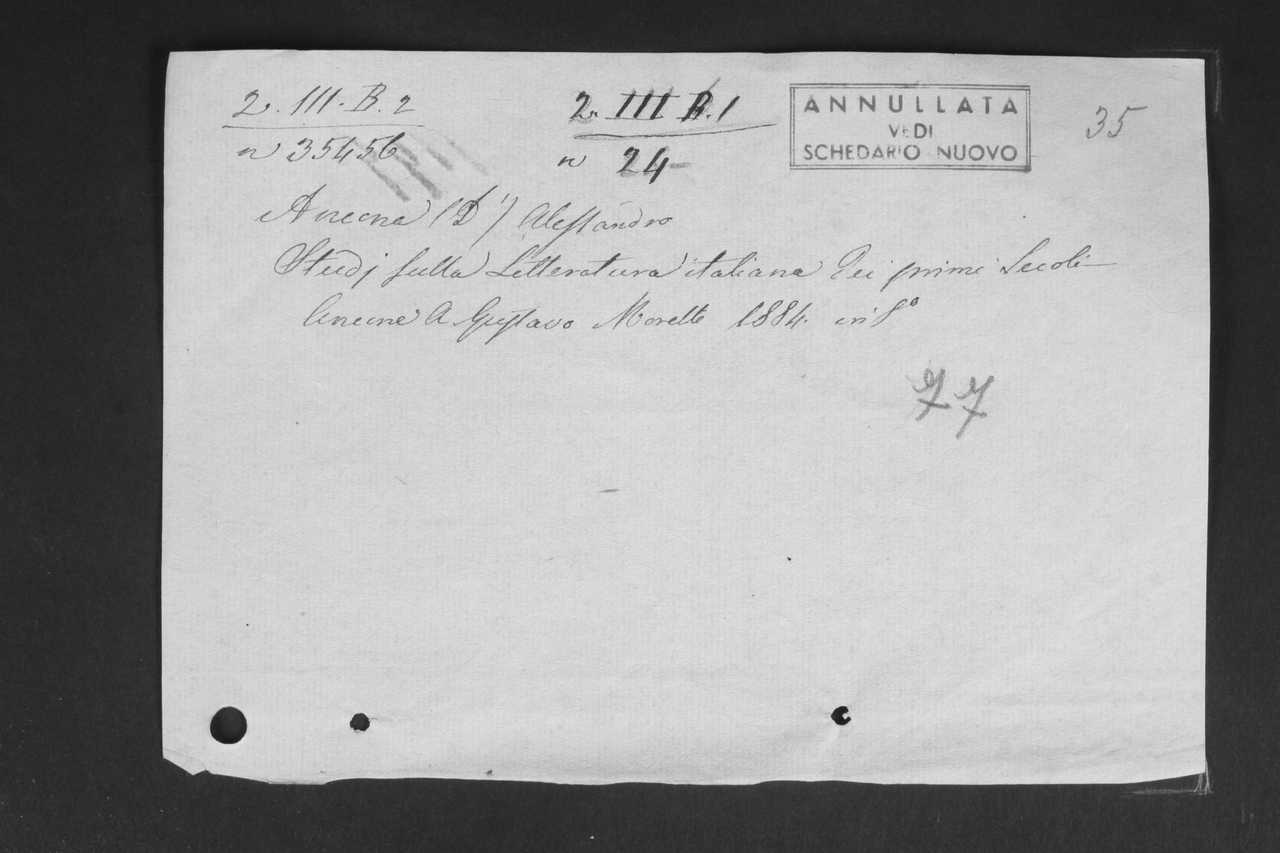 2. III. B. 2
n 35456
2. III B. 1
n 24
ANNULLATA
VEDI
SCHEDARIO NUOVO
35
Ancona (D') Alessandro
Studj sulla Letteratura italiana dei primi Secoli
Ancona A. Gustavo Morelli 1884. in 8°
77